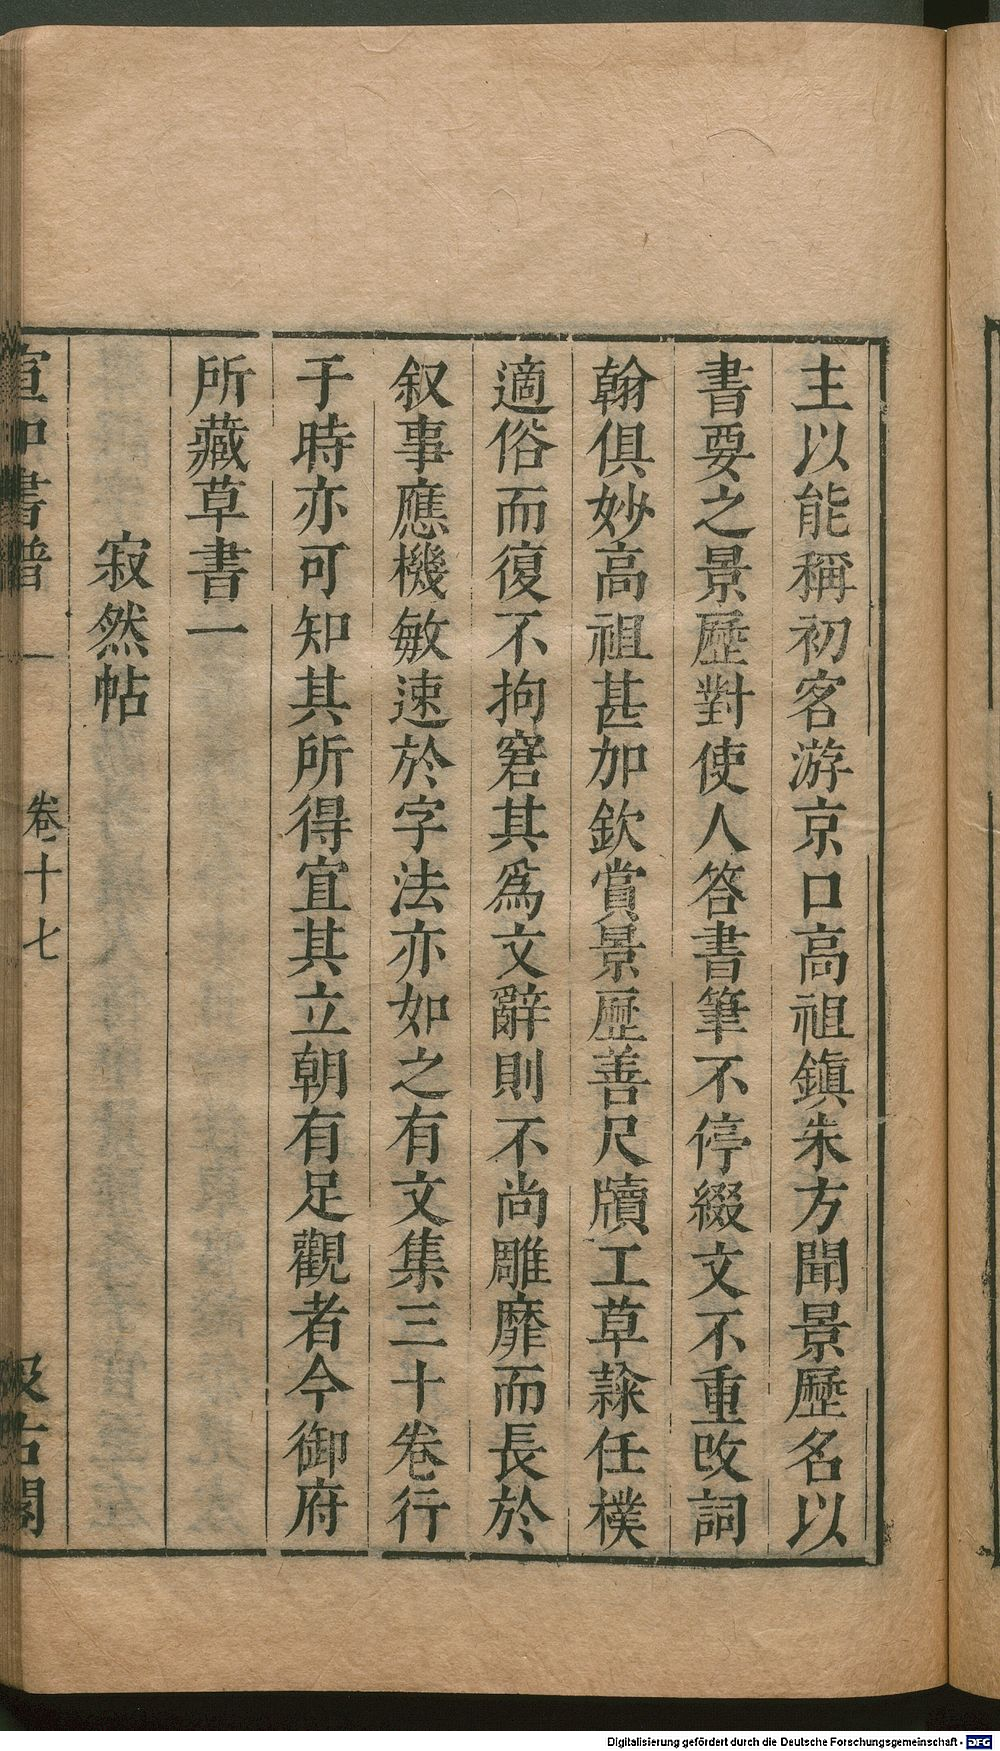 主以能稱初客游京口高祖鎮朱方聞景歷名以
書要之景歷對使人答書筆不停綴文不重改詞
翰俱妙高祖甚加欽賞景歷善尺牘工草隸任樸
適俗而復不拘窘其爲文辭則不尚雕靡而長於
叙事應機敏速於字法亦如之有文集三十卷行
于時亦可知其所得宜其立朝有足觀者今御府
所藏草書一
寂然帖
宣和書譜 卷十七 汲古閣
Digitalisierung gefördert durch die Deutsche Forschungsgemeinschaft - DFG